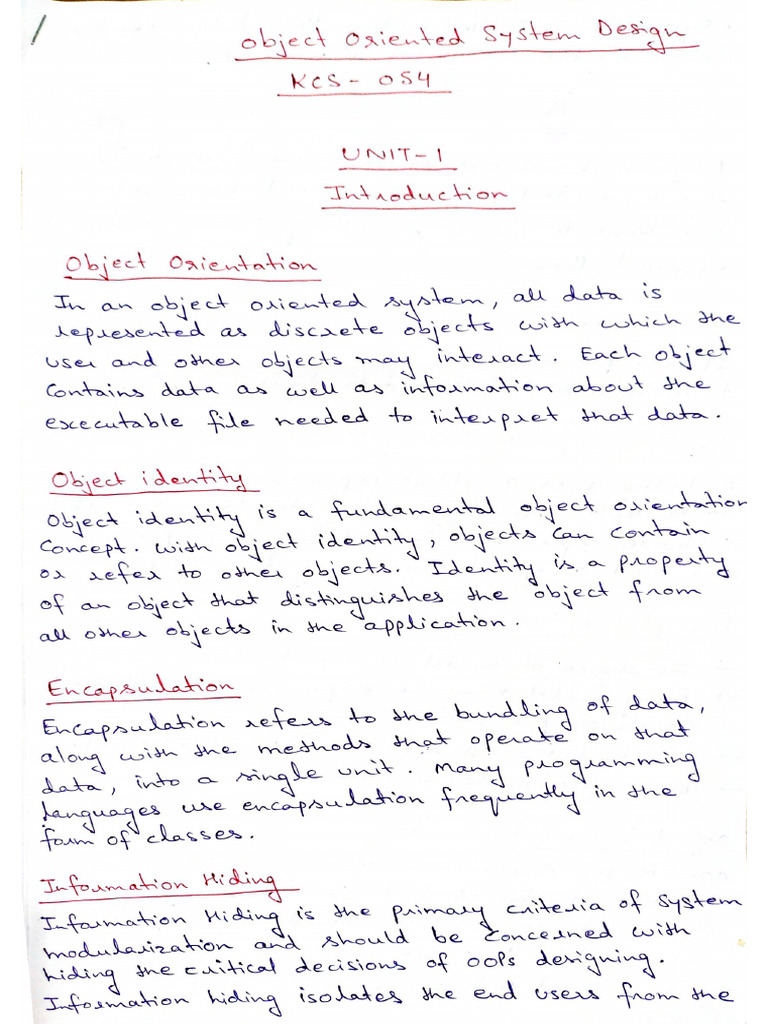 Object Oriented System Design
KCS-054
UNIT-1
Introduction
Object Orientation
In an object oriented system, all data is
represented as discrete objects with which the
user and other objects may interact. Each object
contains data as well as information about the
executable file needed to interpret that data.
Object identity
Object identity is a fundamental object orientation
concept. With object identity, objects can contain
or refer to other objects. Identity is a property
of an object that distinguishes the object from
all other objects in the application.
Encapsulation
Encapsulation refers to the bundling of data,
along with the methods that operate on that
data, into a single unit. Many programming
languages use encapsulation frequently in the
form of classes.
Information Hiding
Information Hiding is the primary criteria of system
modularization and should be concerned with
hiding the critical decisions of OOPs designing.
Information hiding isolates the end users from the